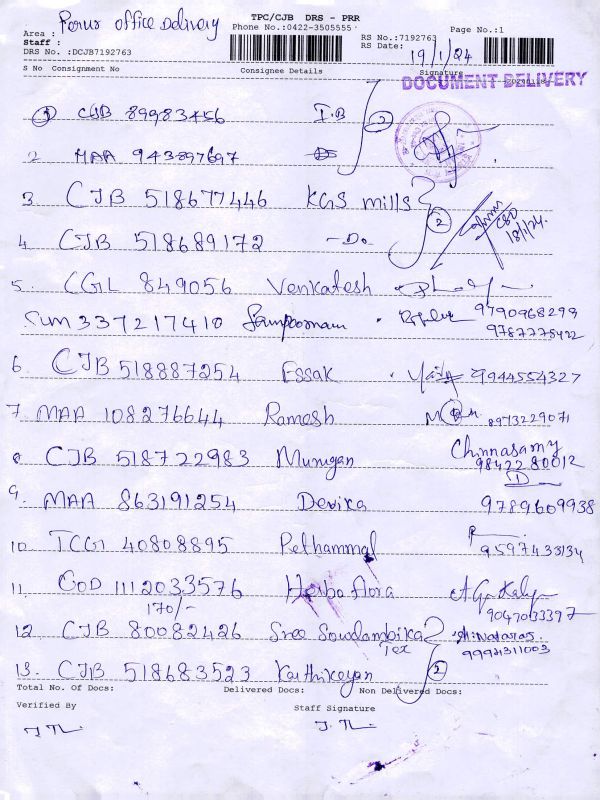 Perur office Delivery
TPC/CJB DRS - PRR
Area :
Phone No.:0422-3505555
Page No.:1
Staff :
RS No.:7192763
DRS No. :DCJB7192763
RS Date:
19/1/24
S No Consignment No Consignee Details Signature
DOCUMENT DELIVERY
1 CJB 89983456 I.B 2
2 MAA 943897697
3 CJB 518677446 KGS mills
4. CJB 518689172 -Do 2
18/1/24
5. CGL 849056 Venkatesh
SUM 337217410 Sampoornam 9790968299
9787775422
6. CJB 518887254 Essak 9944554327
7. MAA 108276644 Ramesh 8973229071
8 CJB 518722983 Murugan Chinnasamy
9842280012
9. MAA 863191254 Devika 9789609938
10. TCG1 40808895 Pethammal 9597433134
11. COD 1112033576 Herbo flora
170/- 9047033397
12. CJB 80082426 Sree Sowdambika
Tex 99941311003
13. CJB 518683523 Karthikeyan 2
Total No. Of Docs: Delivered Docs: Non Delivered Docs:
Verified By Staff Signature